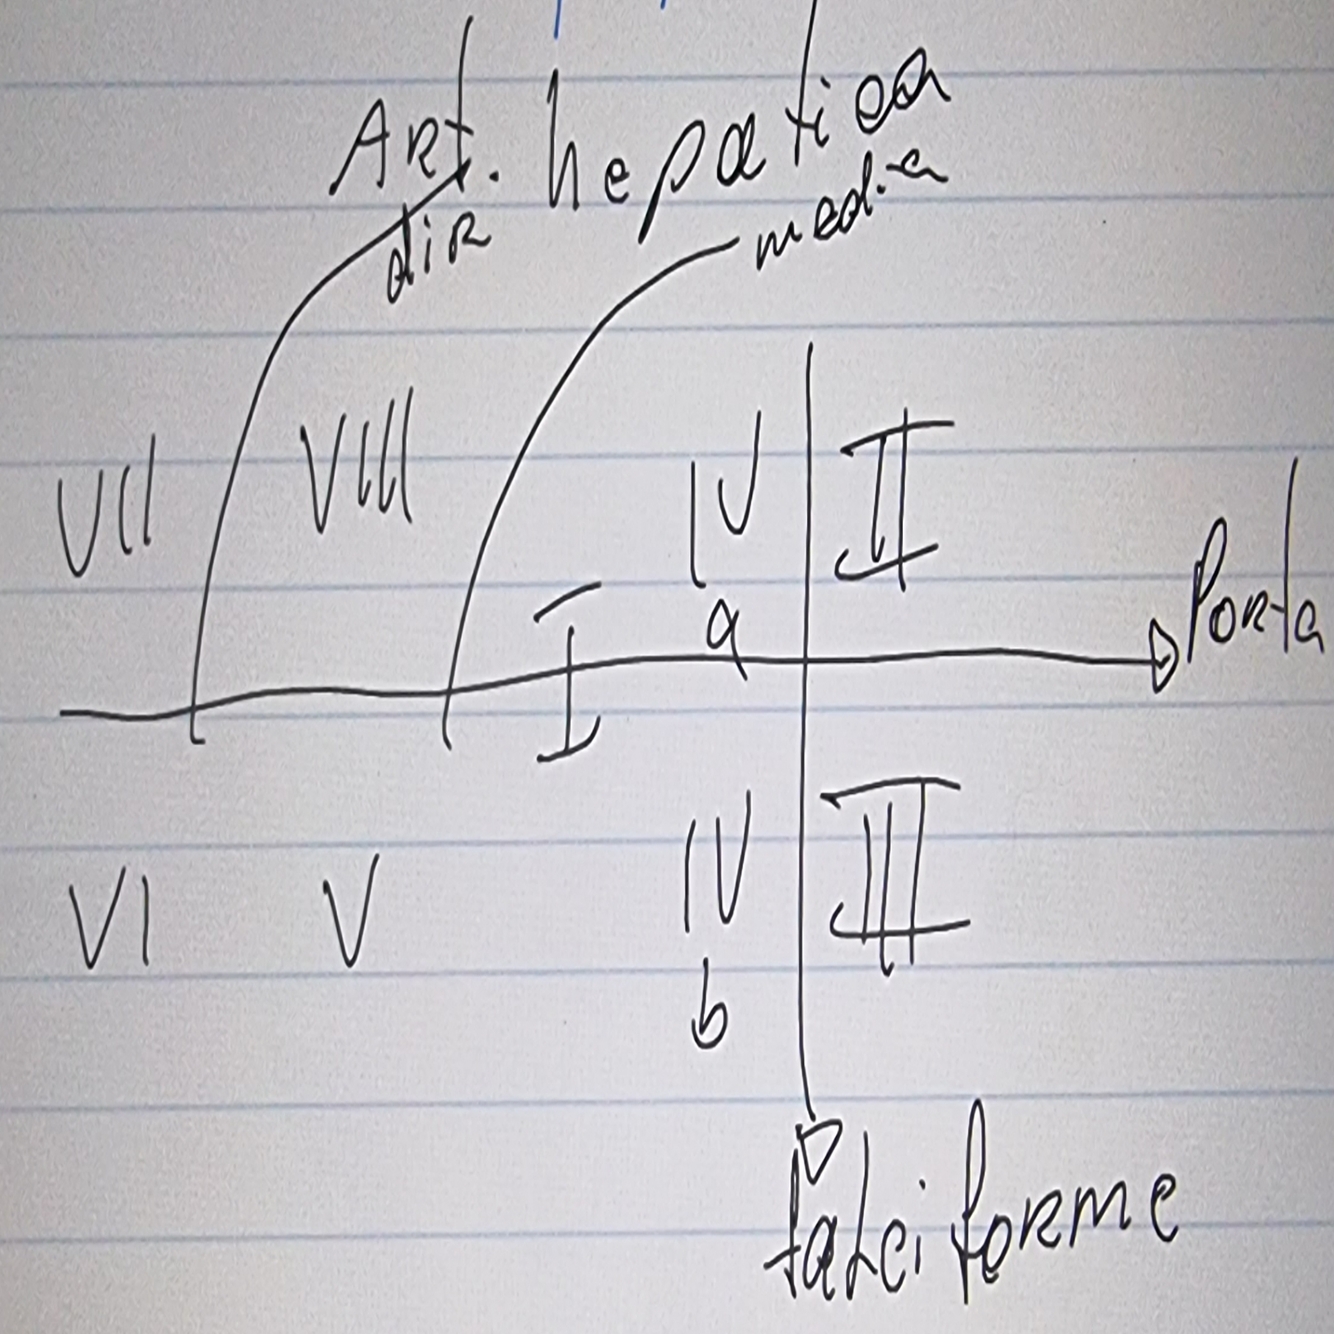 Art. hepatica
dir media
VII VIII IV II
a
I
Porta
VI V IV III
b
falciforme